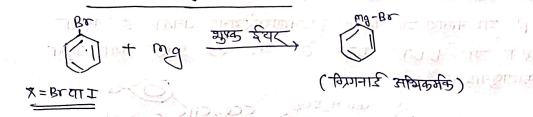 Br + mg शुष्क ईथर mg-Br
X = Br या I
(ग्रिगनार्ड अभिकर्मक)